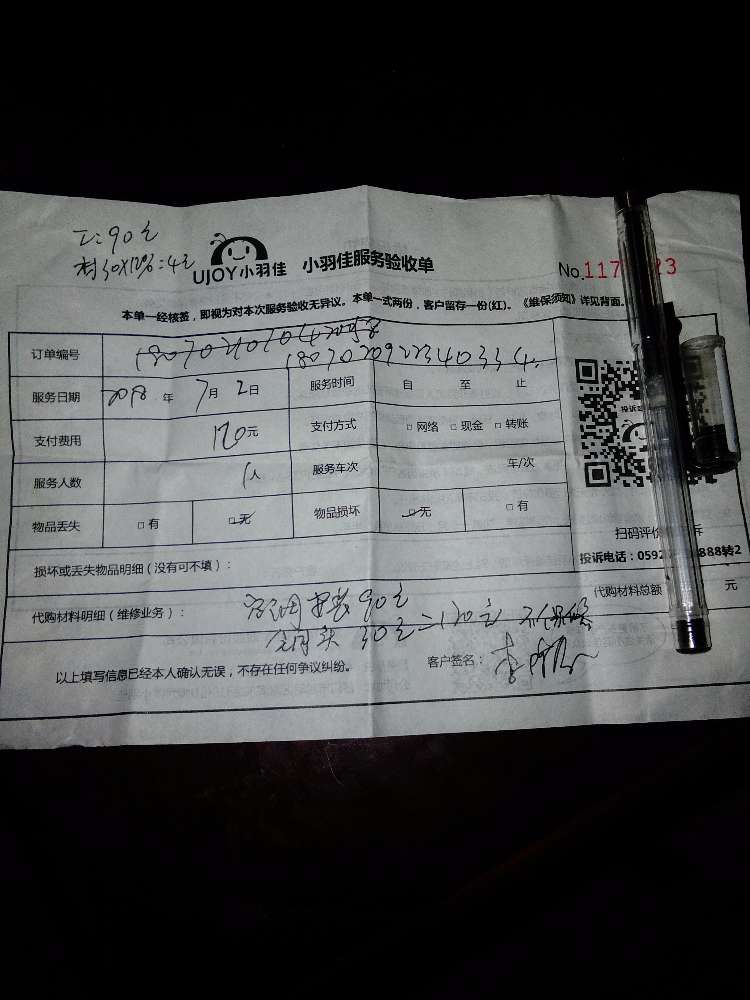 工:90元
材30X12%=4元
UJOY小羽佳 小羽佳服务验收单
No.117 23
本单一经核签，即视为对本次服务验收无异议。本单一式两份，客户留存一份(红)。《维保须知》详见背面。
订单编号
1807020922340334
服务日期 2018 年 7月 2日 服务时间 自 至 止
支付费用 120元 支付方式 □网络 □现金 □转账
服务人数 1人 服务车次 车/次
物品丢失 □有 □无 物品损坏 □无 □有
投诉
扫码评价 诉
投诉电话：0592 888转2
损坏或丢失物品明细（没有可不填）：
代购材料明细（维修业务）： 90元 代购材料总额 元
30元=120元 不保修
以上填写信息已经本人确认无误，不存在任何争议纠纷。 客户签名：李